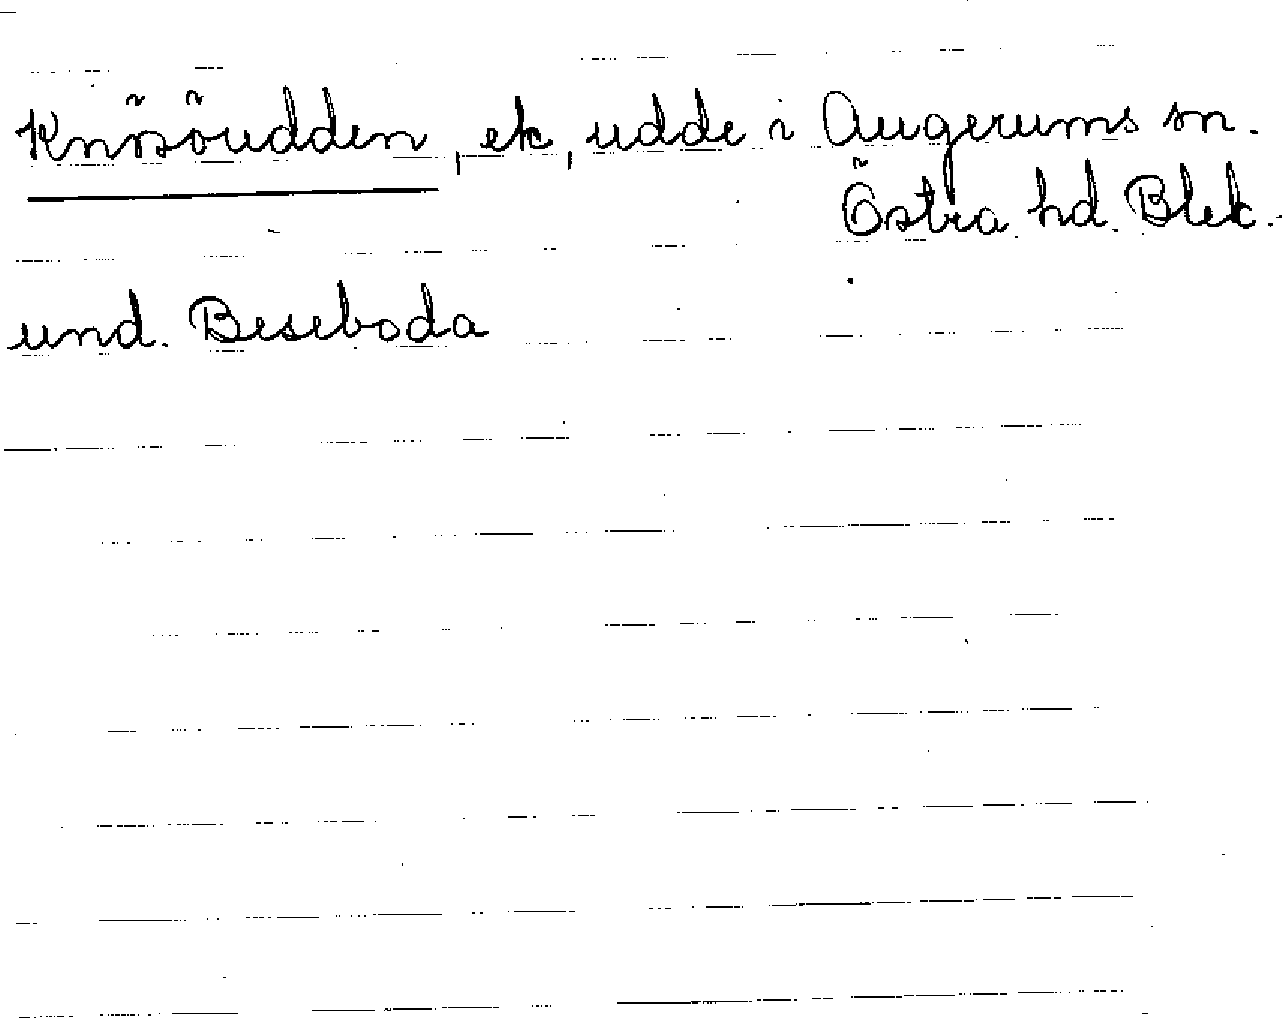 Knösöudden, ek, udde i Augerums sn.
Östra hd. Blek.
und. Beseboda